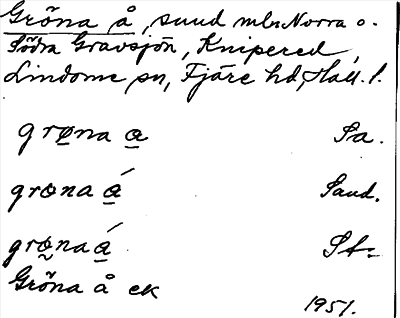 Gröna å, sund mln Norra o.
Södra Gravsjön, Knipered,
Lindome sn, Fjäre hd, Hall. l.
grøna a Sa.
grøna á Sand.
grøna á St:
Gröna å ek
1951.